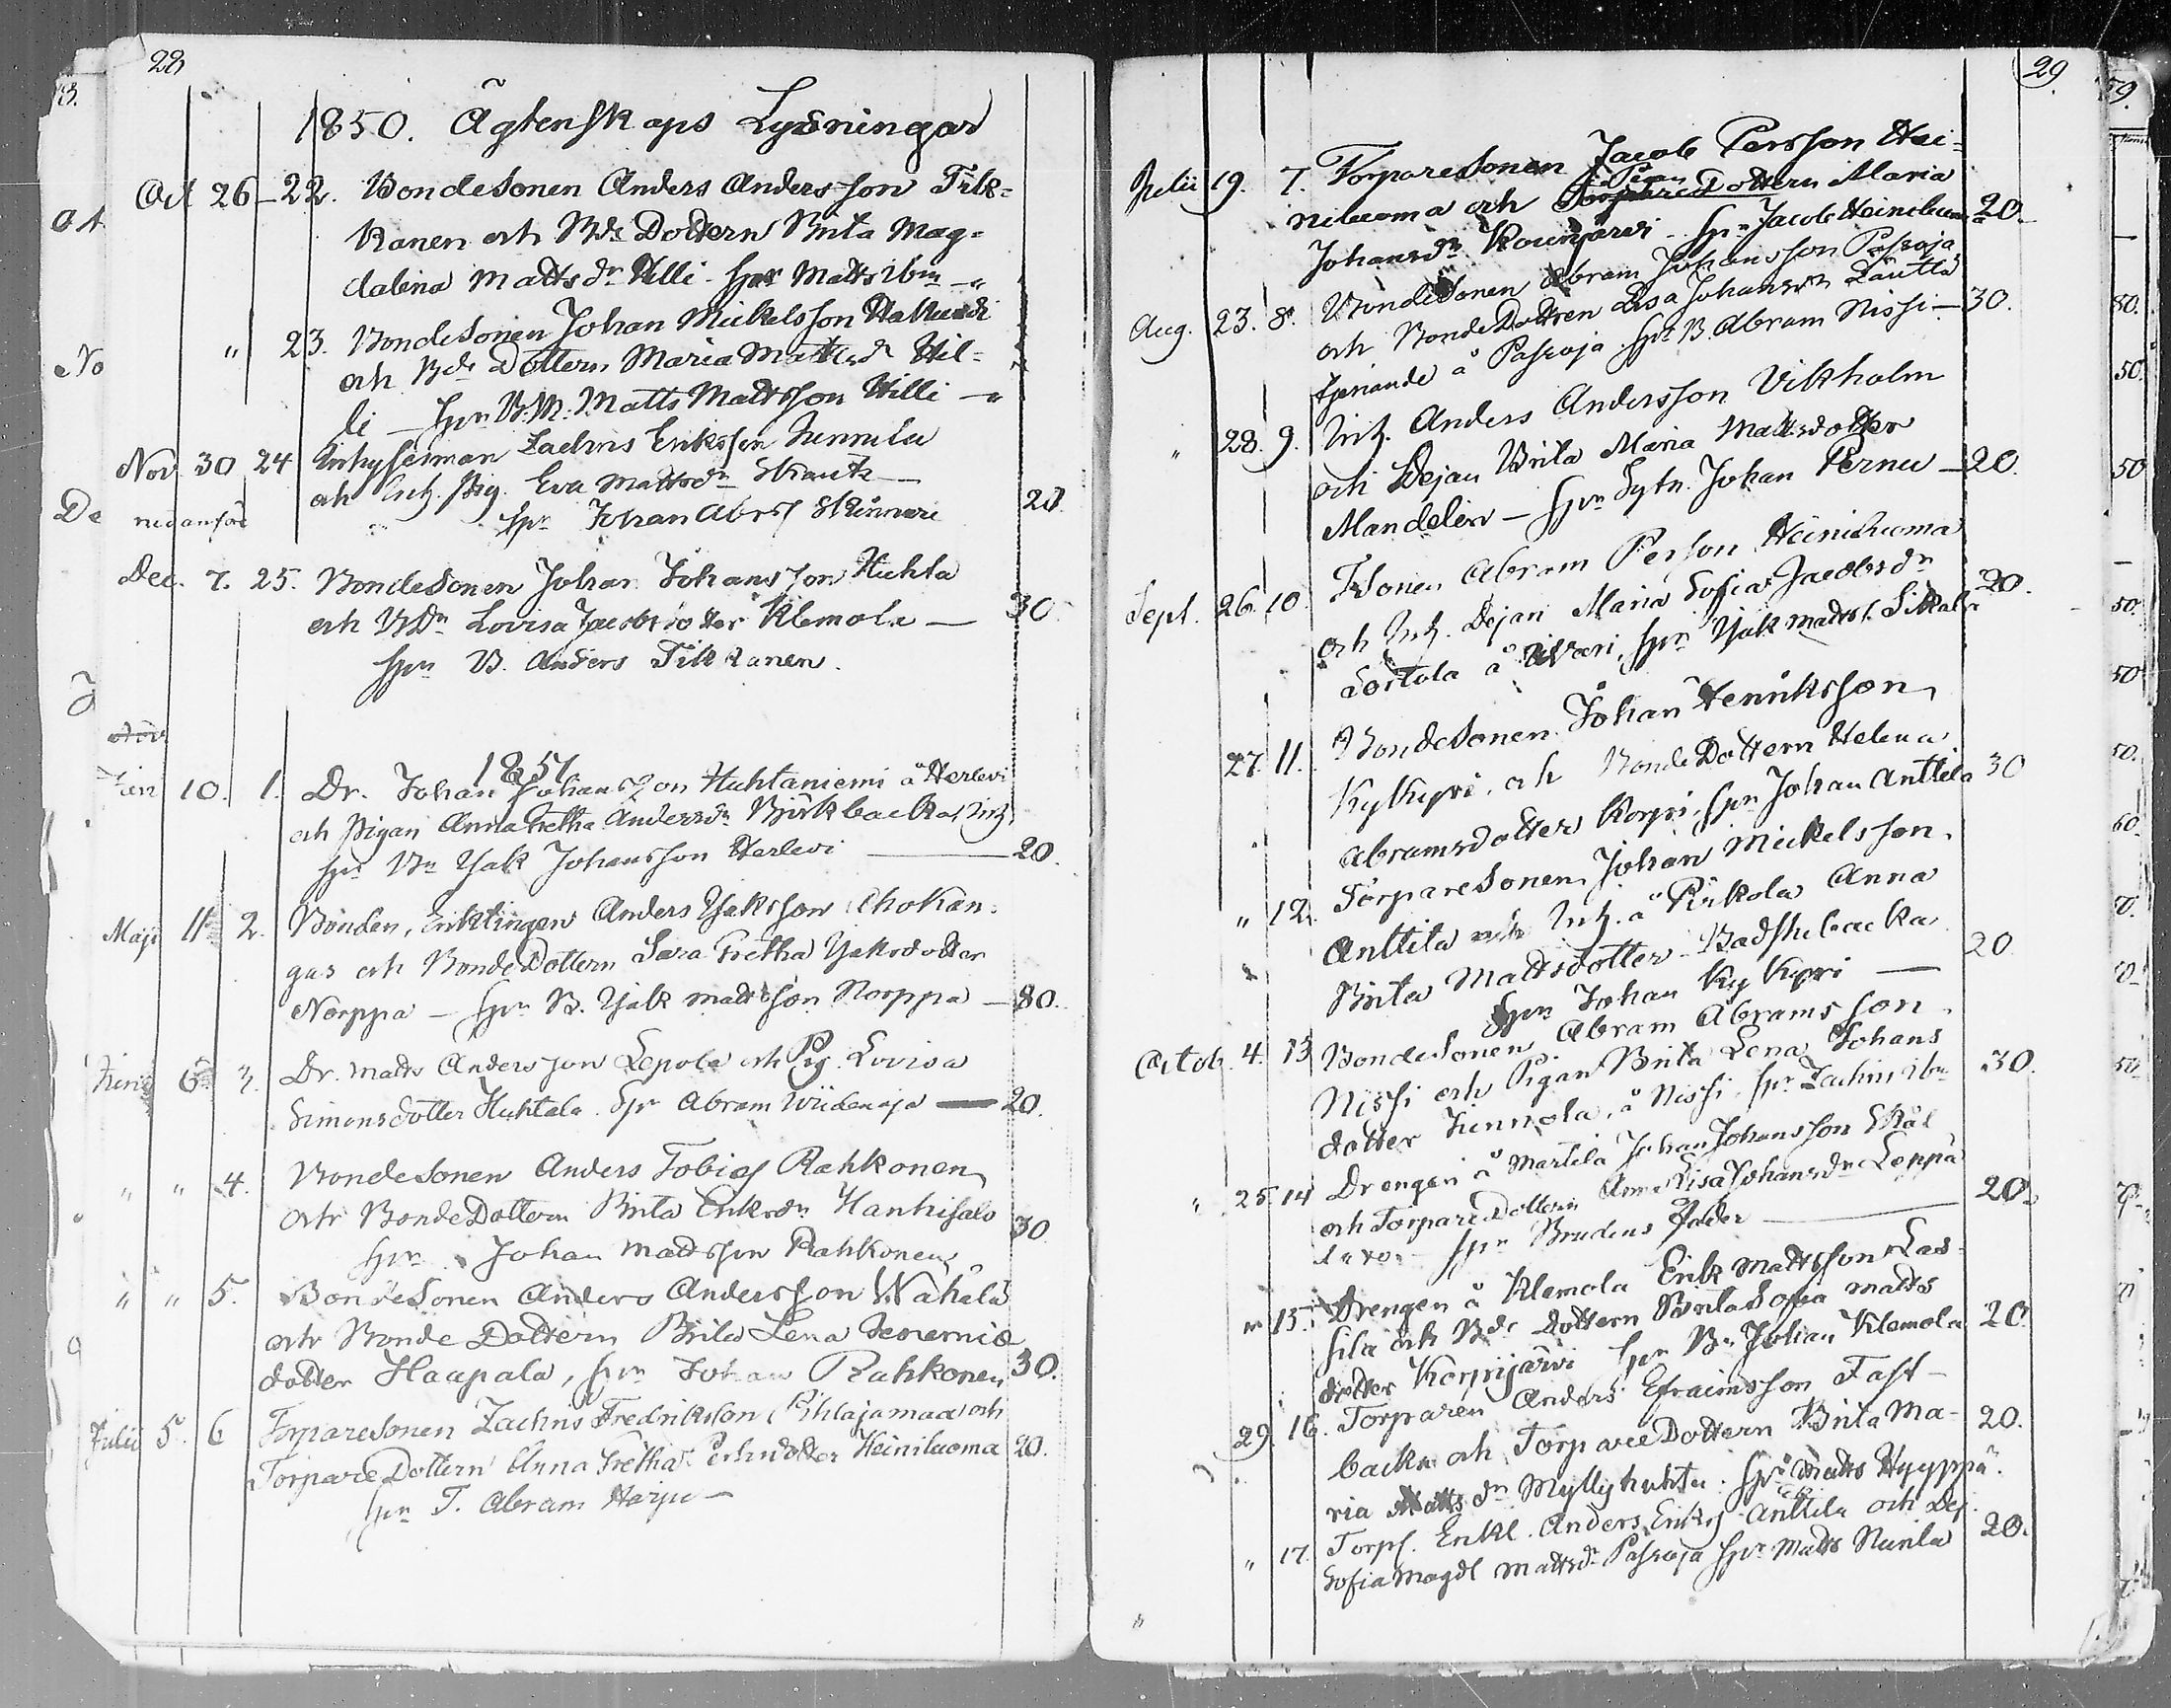 28
1850. Ägtenskaps Lysningar
Oct 26 22. Bondesonen Anders Andersson Tik-
kanen och Bds Dottern Brita Mag-
dalena Mattsdr Hilli. Spr Matts ibm "
" 23. Bondesonen Johan Mickelsson
och Bds Dottern Maria Mattsdr Hil-
li — Spn B. M. Matts Mattsson Hilli — "
Nov 30 24 Zachris Eriksson
och Inh. Pig. Eva Mattsdr
nedanför Spn Johan Abrs 20
Dec. 7. 25. Bondesonen Johan Johansson Huhta
och BDn Lovisa Jacobsdotter Klemola — 30
Spn B. Anders Tikkanen.
1851
10. 1. Dr. Johan Johansson Huhtaniemi å Herlevi
och Pigan Anna Gretha Andersdn Björkbacka Inh.
Spr Bn Isak Johansson Herlevi — 20.
Maji 11 2. Bonden, Enklingen Anders Isaksson Ahokan-
gas och BondeDottern Sara Gretha Isaksdotter
Norppa — Spn B. Isak Mattsson Norppa — 80.
Junii 6. 3. Dr. Matts Andersson Lepola och Pig. Lovisa
Simonsdotter Huhtala. Spr Abram Wiidenoja — 20.
" " 4. Bondesonen Anders Tobias Rahkonen
och BondeDottern Brita Eriksdn Hanhisalo 30
Spn Johan Mattsson Rahkonen
" " 5. BondeSonen Anders Andersson Wähälä
och Bonde Dottern Brita Lena
dotter Haapala, Spn Johan Rahkonen 30.
Julii 5. 6 Torparesonen Zachris Fredriksson Pihlajamaa och
TorpareDottern Anna Gretha Persdotter Heiniluoma 20.
Spn T. Abram Harju —
29.
Julii 19. 7. Torparesonen Jacob Persson Hei-
Pigan
niluoma och TorpareDottern Maria
Johansdn Spn Jacob Heiniluoma 20.
Aug. 23. 8. BondeSonen Abram Johansson Pasoja
och BondeDottren Lisa Johansdn
tjenande å Pasoja. Spn B. Abram Nissi — 30.
" 28. 9. Inh. Anders Andersson Vikholm
och Dejan Brita Maria Mattsdotter
Mandelin — Spn Sytn. Johan Pernu — 20.
Sept. 26. 10. TSonen Abram Persson Heiniluoma
och Inh. Dejan Maria Sofia Jacobsdn 20.
å Spn Isak Matts. Sikala
27. 11. BondeSonen Johan Henriksson
Kykyri och BondeDottern Helena
Abramsdotter Korpi, Spn Johan Anttila 30
" 12. TorpareSonen Johan Mickelsson
Anttila och Inh. å Riikola Anna
Brita Mattsdotter Badstubacka 20
Spn Johan Kykyri —
Octob. 4. 13 BondeSonen Abram Abramsson
Nissi och Pigan Brita Lena Johans
dotter å Nissi. Spn Zachris ibm 30.
" 25. 14 Drengen å Martila Johan Johansson
och TorpareDottern Anna Lisa Johansdn Leppä
Spn Brudens Fader — 20.
" 15. Drengen å Klemola Erik Mattsson Las-
sila och Bds Dottern Brita Sofia Matts
dotter Korpijärvi Spn Bn Johan Klemola 20.
29. 16. Torparen Anders Efraimsson Fast-
backa och TorpareDottern Brita Ma- 20.
ria Mattsdn Myllyhuhta. Spn Matts Hyyppä.
" 17. Torps. Enkl. Anders Eriks Anttila och Dej.
Sofia Magdl Mattsdn Pasoja Spn Matts Nurila 20.